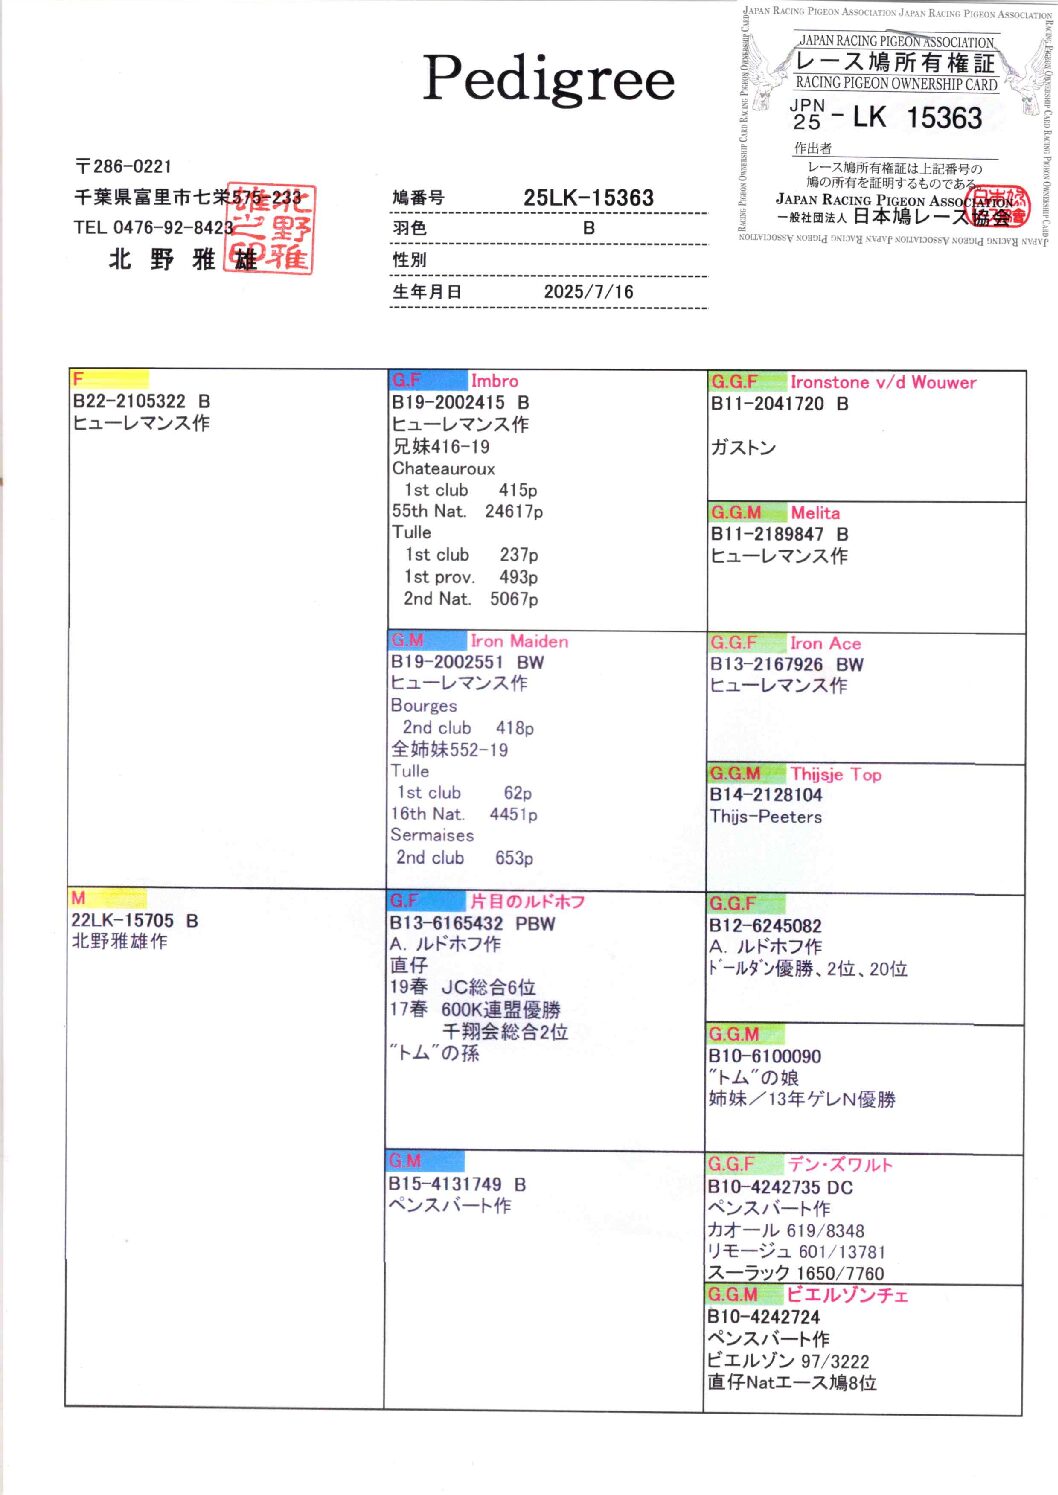 Pedigree
JAPAN RACING PIGEON ASSOCIATION JAPAN RACING PIGEON ASSOCIATION
RACING PIGEON OWNERSHIP CARD RACING PIGEON OWNERSHIP CARD
JAPAN RACING PIGEON ASSOCIATION
レース鳩所有権証
RACING PIGEON OWNERSHIP CARD
JPN
25 - LK 15363
作出者
レース鳩所有権証は上記番号の
鳩の所有を証明するものである。
JAPAN RACING PIGEON ASSOCIATION
一般社団法人 日本鳩レース協会
JAPAN RACING PIGEON ASSOCIATION JAPAN RACING PIGEON ASSOCIATION
〒286-0221
千葉県富里市七栄575-233
TEL 0476-92-8423
北 野 雅 雄
鳩番号 25LK-15363
羽色 B
性別
生年月日 2025/7/16
F
B22-2105322 B
ヒューレマンス作
G.F Imbro
B19-2002415 B
ヒューレマンス作
兄妹416-19
Chateauroux
1st club 415p
55th Nat. 24617p
Tulle
1st club 237p
1st prov. 493p
2nd Nat. 5067p
G.G.F Ironstone v/d Wouwer
B11-2041720 B
ガストン
G.G.M Melita
B11-2189847 B
ヒューレマンス作
G.M Iron Maiden
B19-2002551 BW
ヒューレマンス作
Bourges
2nd club 418p
全姉妹552-19
Tulle
1st club 62p
16th Nat. 4451p
Sermaises
2nd club 653p
G.G.F Iron Ace
B13-2167926 BW
ヒューレマンス作
G.G.M Thijsje Top
B14-2128104
Thijs-Peeters
M
22LK-15705 B
北野雅雄作
G.F 片目のルドホフ
B13-6165432 PBW
A. ルドホフ作
直仔
19春 JC総合6位
17春 600K連盟優勝
千翔会総合2位
"トム"の孫
G.G.F
B12-6245082
A. ルドホフ作
ドールダン優勝、2位、20位
G.G.M
B10-6100090
"トム"の娘
姉妹／13年ゲレN優勝
G.M
B15-4131749 B
ペンスバート作
G.G.F デン・ズワルト
B10-4242735 DC
ペンスバート作
カオール 619/8348
リモージュ 601/13781
スーラック 1650/7760
G.G.M ビエルゾンチェ
B10-4242724
ペンスバート作
ビエルゾン 97/3222
直仔Natエース鳩8位